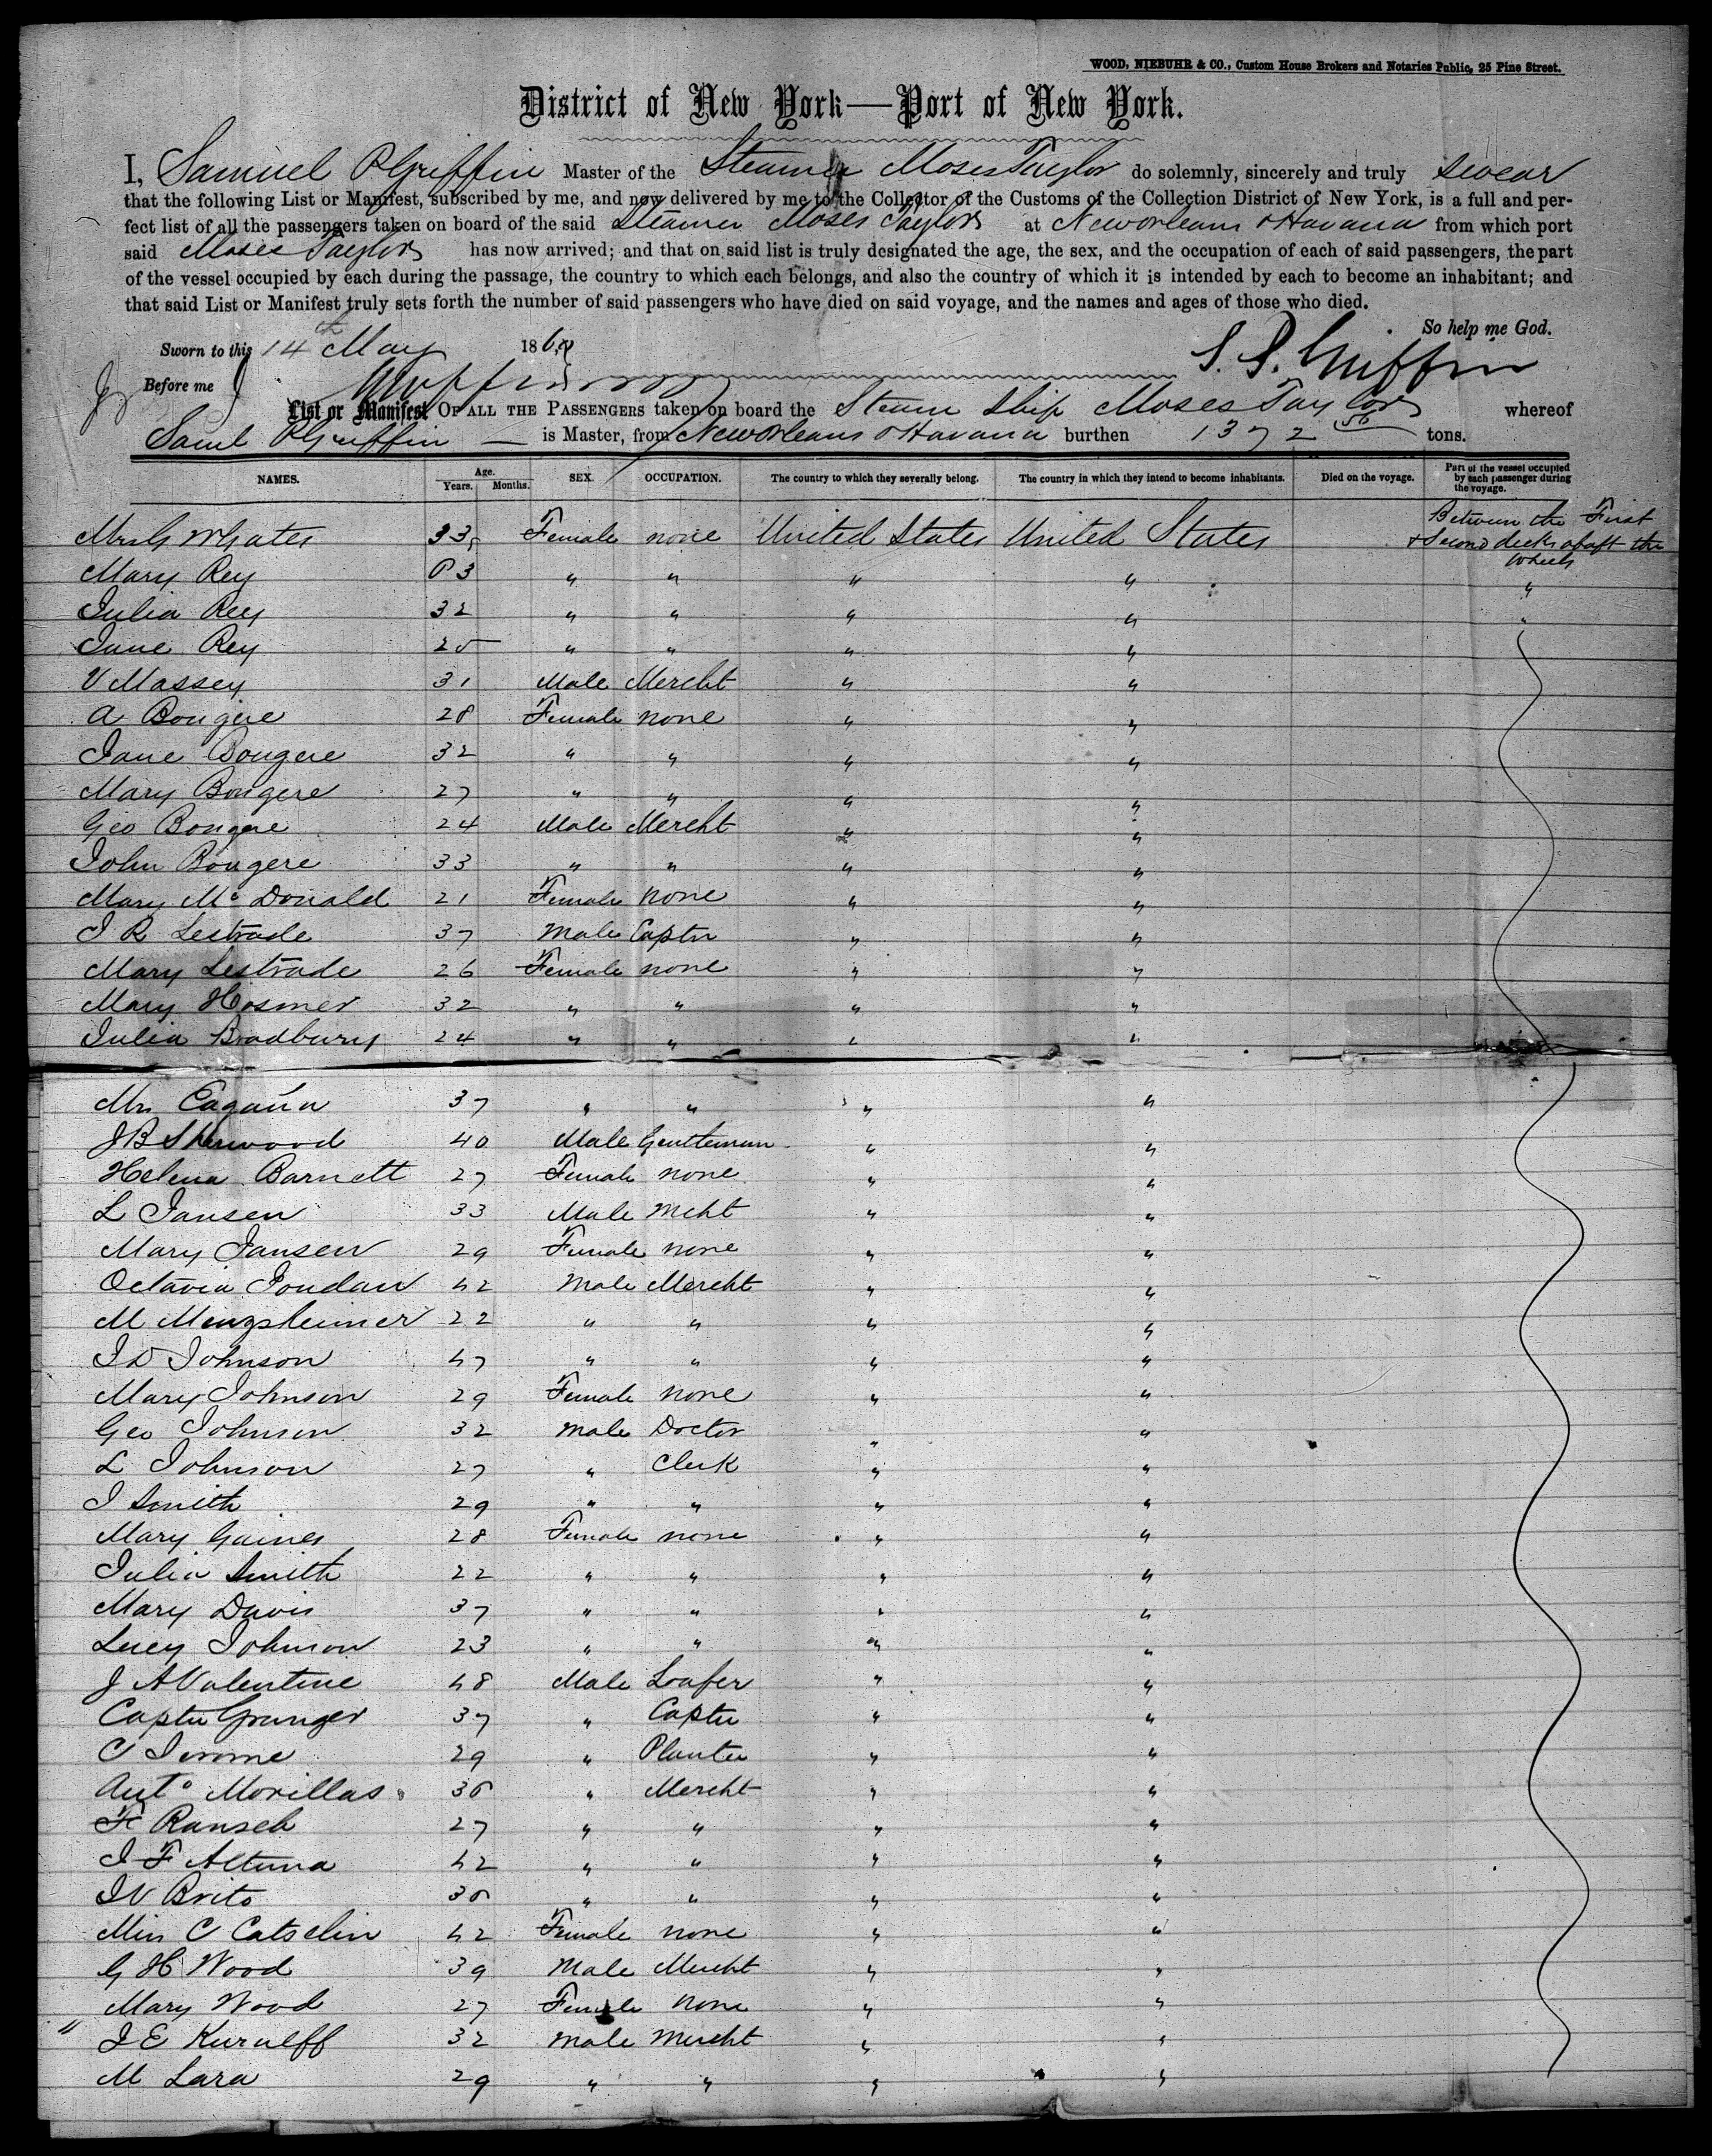 WOOD, NIEBUHR & CO., Custom House Brokers and Notaries Public, 25 Pine Street.
District of New York—Port of New York.
I, Samuel P Griffin Master of the Steamer Moses Taylor do solemnly, sincerely and truly swear
that the following List or Manifest, subscribed by me, and now delivered by me to the Collector of the Customs of the Collection District of New York, is a full and per-
fect list of all the passengers taken on board of the said Steamer Moses Taylor at New Orleans & Havana from which port
said Moses Taylor has now arrived; and that on said list is truly designated the age, the sex, and the occupation of each of said passengers, the part
of the vessel occupied by each during the passage, the country to which each belongs, and also the country of which it is intended by each to become an inhabitant; and
that said List or Manifest truly sets forth the number of said passengers who have died on said voyage, and the names and ages of those who died.
So help me God.
Sworn to this 14th May 186
S. P. Griffin
Before me
List or Manifest OF ALL THE PASSENGERS taken on board the Steam Ship Moses Taylor whereof
Saml P Griffin is Master, from New Orleans & Havana burthen 1372 50 tons.
NAMES. Age. Years. Months. SEX. OCCUPATION. The country to which they severally belong. The country in which they intend to become inhabitants. Died on the voyage. Part of the vessel occupied by each passenger during the voyage.
33 Female none United States United States Between the First & Second decks abaft the Wheels
Mary Rey 63 " " " " "
Julia Rey 32 " " " " "
Jane Rey 25 " " " "
V Massey 31 Male Mercht " "
A Bougere 28 Female none " "
Jane Bougere 32 " " " "
Mary Bougere 27 " " " "
Geo Bougere 24 Male Mercht " "
John Bougere 33 " " " "
Mary McDonald 21 Female none " "
J R Lestrade 37 Male Captn " "
Mary Lestrade 26 Female none " "
Mary Hosmer 32 " " " "
Julia Bradbury 24 " " " "
37 " " " "
J B Sherwood 40 Male Gentleman " "
Helena Barnett 27 Female none " "
L Jansen 33 Male Mcht " "
Mary Jansen 29 Female none " "
Octavia Joudan 42 Male Mercht " "
M Menzsheimer 22 " " " "
J D Johnson 47 " " " "
Mary Johnson 29 Female none " "
Geo Johnson 32 Male Doctor " "
L Johnson 27 " Clerk " "
J Smith 29 " " " "
Mary Gaines 28 Female none " "
Julia Smith 22 " " " "
Mary Davis 37 " " " "
Lucy Johnson 23 " " " "
J A Valentine 48 Male Loafer " "
Captn Granger 37 " Captn " "
C Jerome 29 " Planter " "
Anto Morillas 36 " Mercht " "
F Ranseh 27 " " " "
J F Altuna 42 " " " "
J V Brito 36 " " " "
Miss C Catselin 42 Female none " "
G H Wood 39 Male Mercht " "
Mary Wood 27 Female none " "
" J E Kurulff 32 Male Mercht " "
M Lara 29 " " " "